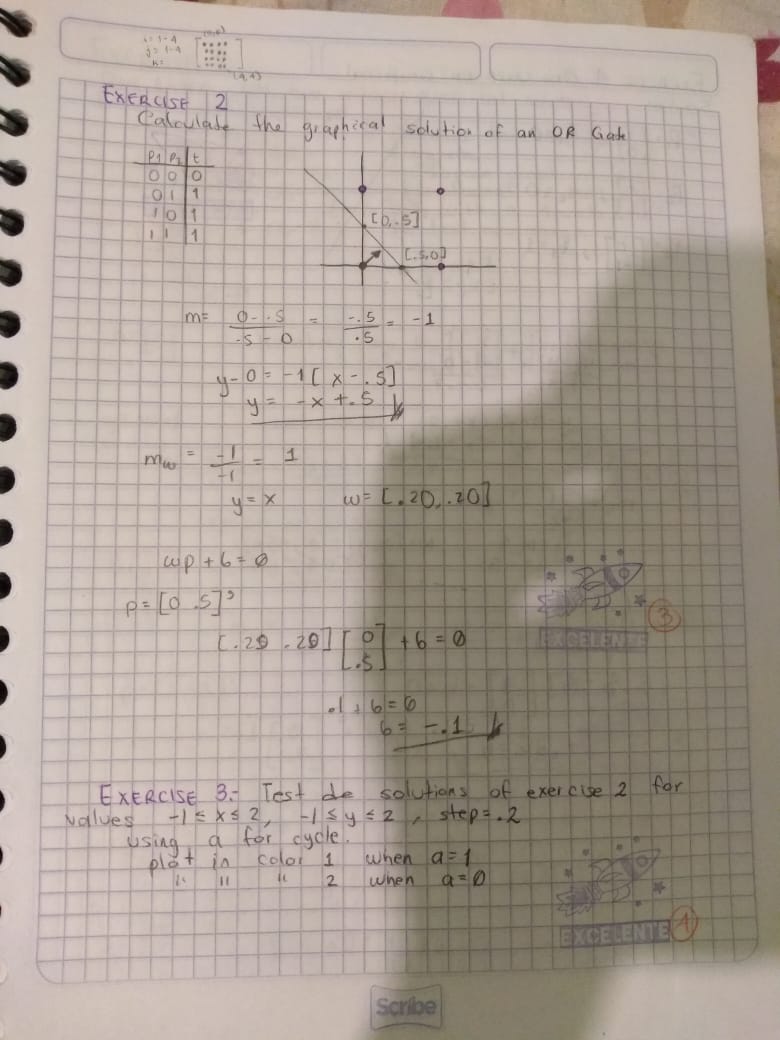 i= 1-4
j= 1-4
k=
(4,4)
EXERCISE 2
Calculate the graphical solution of an OR Gate
P1 P2 t
0 0 0
0 1 1
1 0 1
1 1 1
[0,.5]
[.5,0]
m= 0-.5 / .5-0 = -.5 / .5 = -1
y-0 = -1[x-.5]
y= -x+.5
mw = -1 / -1 = 1
y=x w=[.20,.20]
wp+b=0
p=[0 .5]
[.20 .20][0 .5]+b=0
.1+b=0
b= -.1
EXCELENTE 3
EXERCISE 3.- Test de solutions of exercise 2 for
values -1≤x≤2, -1≤y≤2, step=.2
using a for cycle.
plot in color 1 when a=1
" " " 2 when a=0
EXCELENTE 4
Scribe